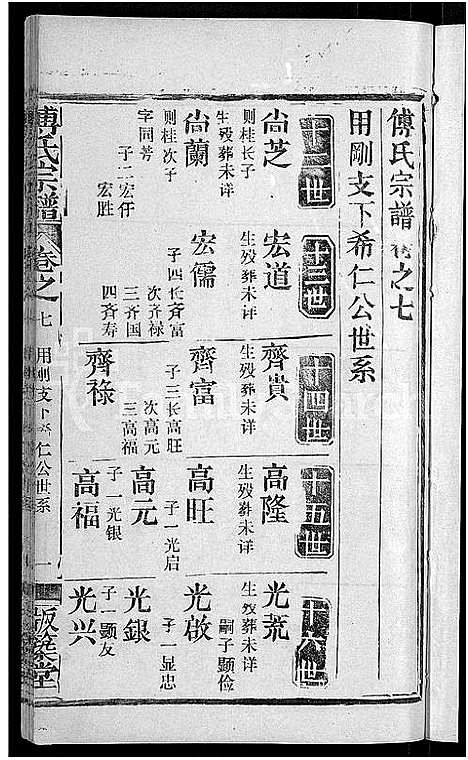 傅氏宗譜 卷之七
用剛支下希仁公世系
十二世
尙芝
则桂长子
生殁葬未详
尙蘭
则桂次子
字同芳
子二宏仔
宏胜
十三世
宏道
生殁葬未详
宏儒
子四长斉富
次斉禄
三斉国
四斉寿
十四世
齊貴
生殁葬未详
齊富
子三长高旺
次高元
三高福
齊祿
十五世
高隆
生殁葬未详
高旺
子一光启
高元
子一光银
高福
十六世
光荒
生殁葬未详
嗣子顕俭
光啟
子一显忠
光銀
子一顕友
光兴
傅氏宗譜
卷之七
用刚支下希仁公世系
一
版築堂